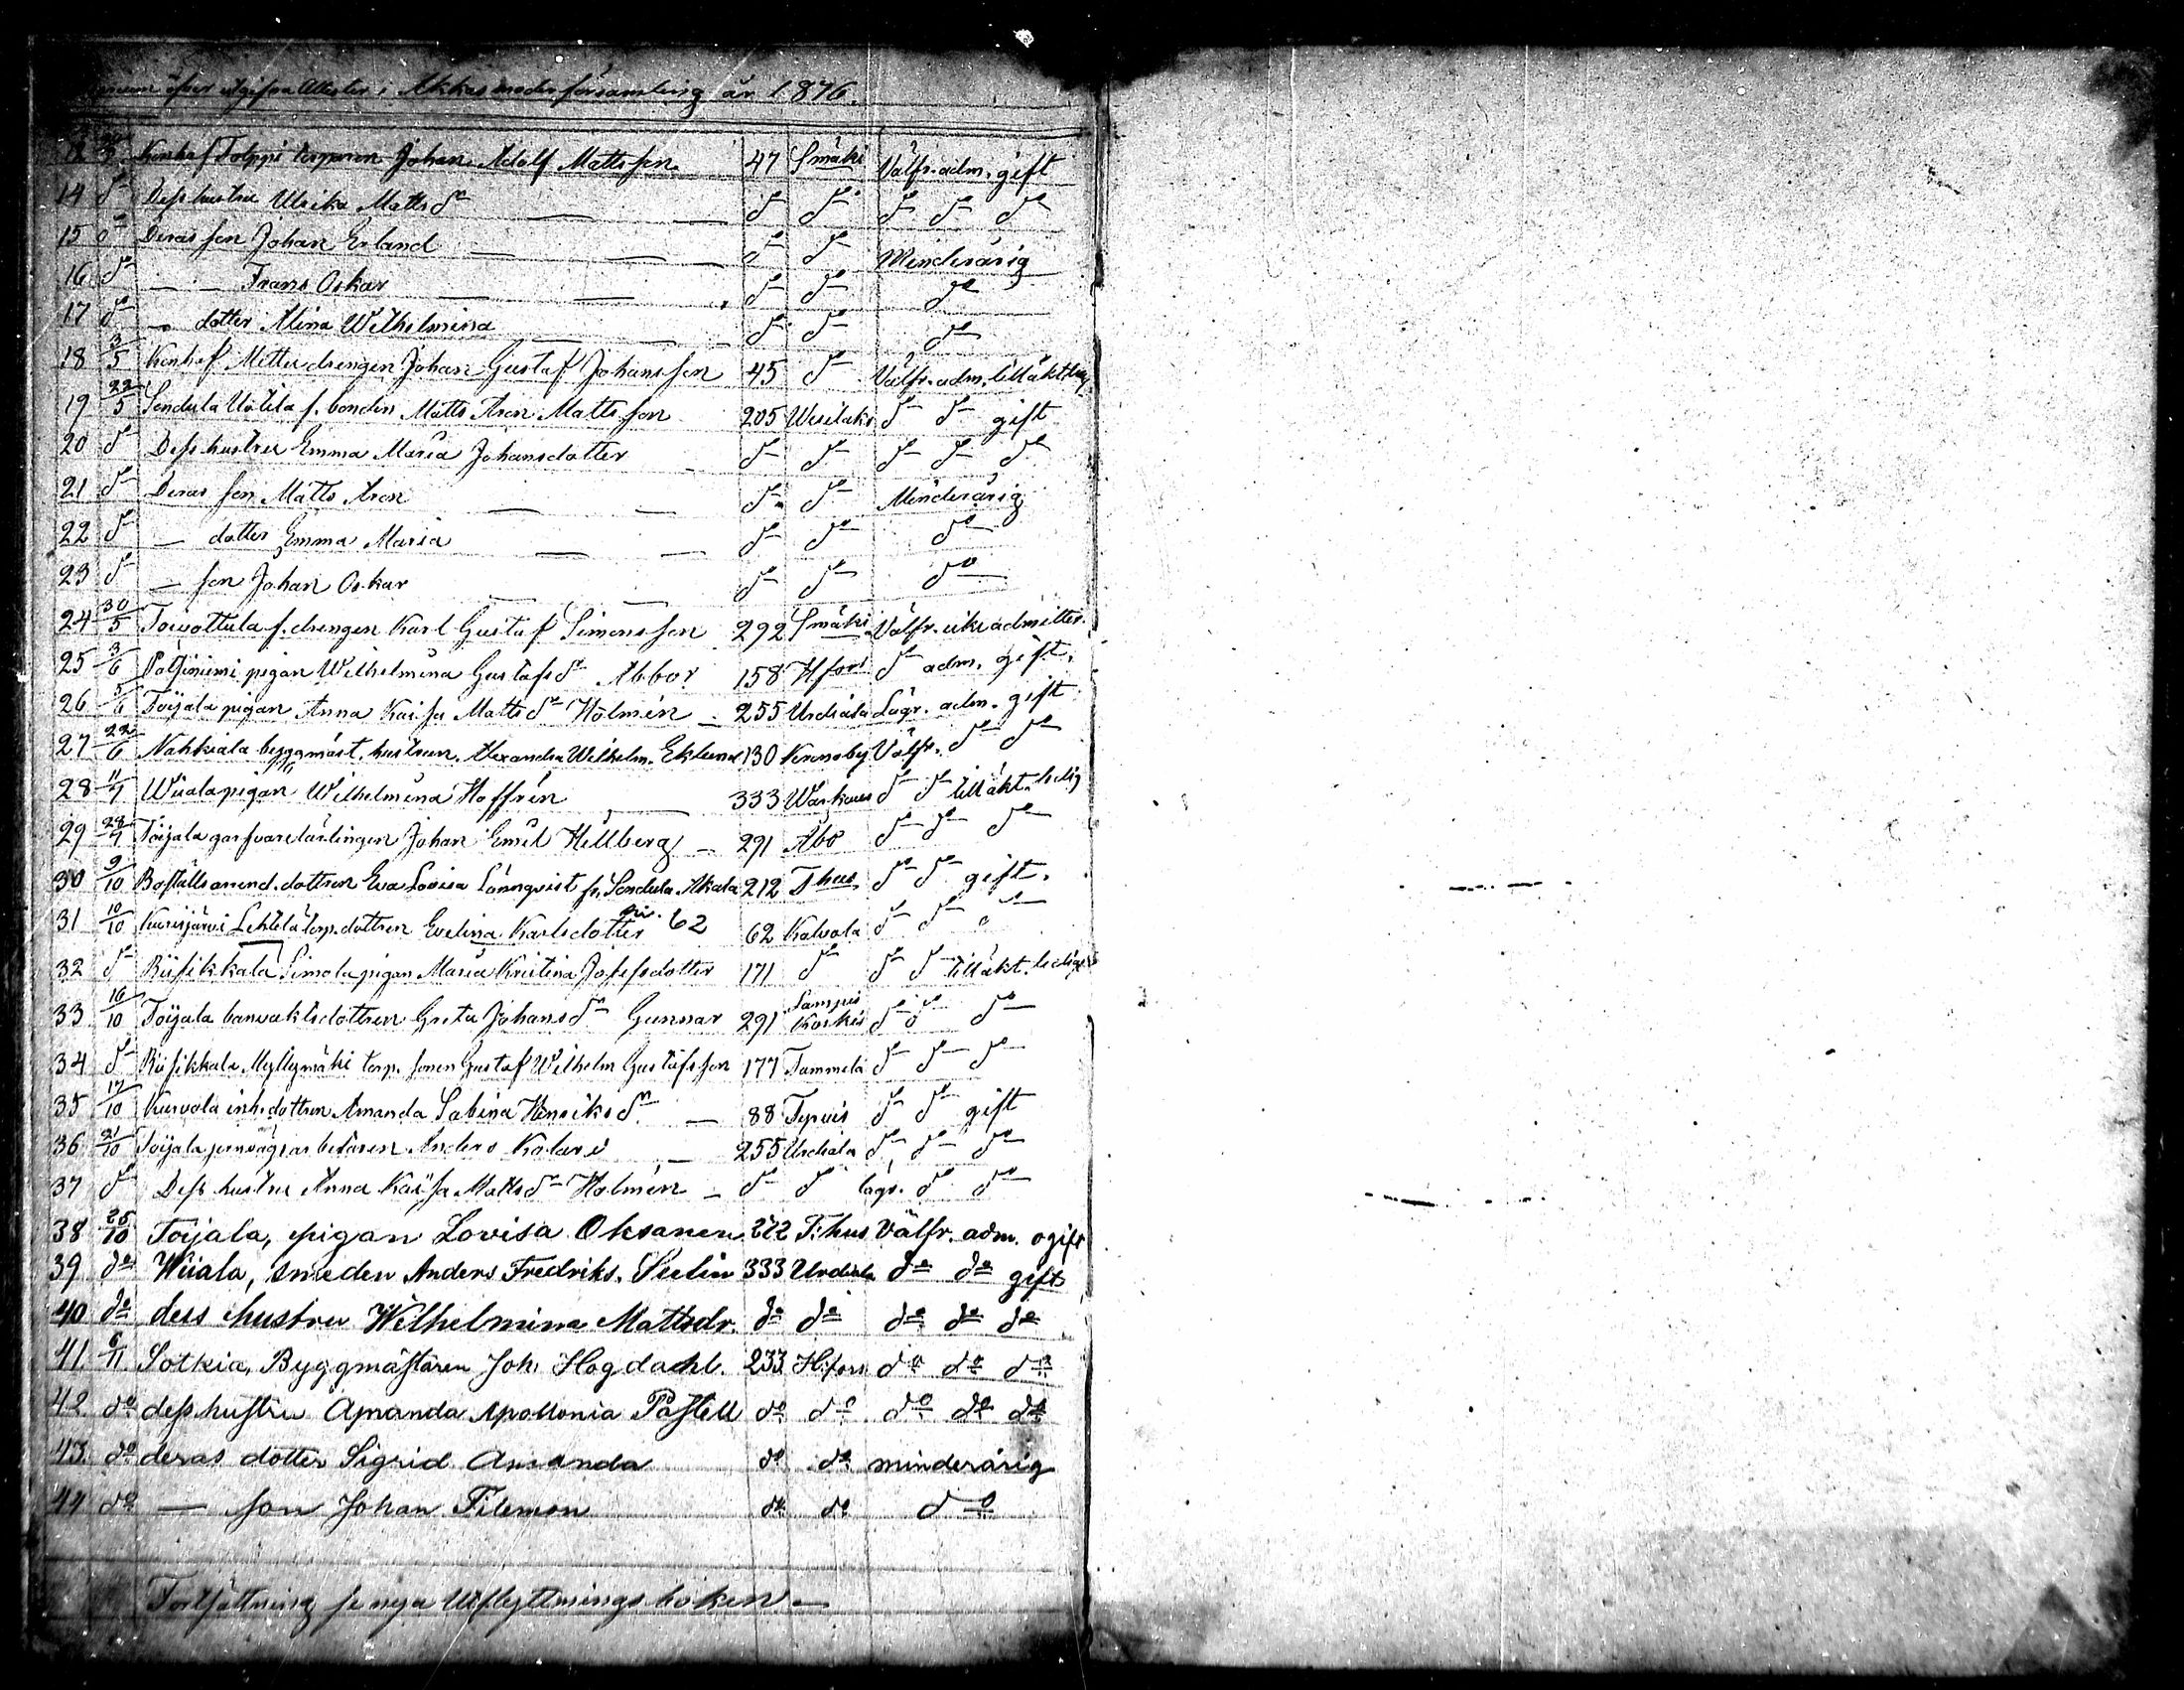 öfver utgifna Attester i Akkas moderförsamling år 1876.
Kenhof Tolppi torparen Johan Adolf Mattsson 47 Smäki Välfr. adm. gift
14 do Dess hustru Ulrika Matts dr do do do do do
15 do Deras son Johan Erland do do Minderårig
16 do — — Frans Oskar do do do
17 do — dotter Alina Wilhelmina do do do
18 3/5 Kenhof Mettu drengen Johan Gustaf Johansson 45 do Välfr. adm. tilläkt.
19 22/5 Sondula Uotila f. bonden Matts Aron Mattsson 205 Wesilaks do do gift
20 do Dess hustru Emma Maria Johansdotter do do do do do
21 do Deras son Matts Aron do do Minderårig
22 do — dotter Emma Maria do do do
23 do — son Johan Oskar do do do
24 30/5 Towottula f. drengen Karl Gustaf Simonsson 292 Smäki Välfr. icke admitter.
25 3/6 pigan Wilhelmina Gustafs dr Abbor 158 Hfors do adm. gift.
26 5/6 Toijala pigan Anna Kaisa Matts dr Holmén — 255 Urdiala Lägr. adm. gift
27 22/6 Nahkiala byggmäst. hustrun Alexandra Wilhelm. Eklund 130 Kronoby Välfr. do do
28 11/7 Wiiala pigan Wilhelmina Hoffrén 333 Warkaus do do tilläkt. ledig
29 28/7 Toijala garfvare lärlingen Johan Emil Hellberg — 291 Åbo do do do
30 9/10 Boställs arrend. dottren Eva Lovisa Lönnqvist fr. Sondula Akala 212 Thus do do gift.
31 10/10 Kurisjärvi Lehtelä torp. dottren Evelina Karlsdotter 62 62 Kalvola do do do
32 do Riisikkala Simola pigan Maria Kristina Josefsdotter 171 do do do tilläkt. ledig
33 16/10 Toijala banvaktsdottren Greta Johans dr Gunnar 291 Lampis Koskis do do do
34 do Riisikkala Myllymäki torp. sonen Gustaf Wilhelm Gustafsson 177 Tammela do do do
35 17/10 Kurvola inh. dottren Amanda Sabina Henriks dr — 88 Typvis do do gift
36 21/10 Toijala jernvägsarbetaren Anders Kalari — 255 Urdiala do do do
37 do Dess hustru Anna Kaisa Matts dr Holmén — do do lägr. do do
38 25/10 Toijala, pigan Lovisa Oksanen 272 T:hus Välfr. adm. ogift
39 do Wiiala, smeden Anders Fredriks. Seelin 333 Urdiala do do gift
40 do dess hustru Wilhelmina Mattsdr. do do do do do
41. 6/11 Sotkia, Byggmästaren Joh. Hogdahl. 233. H:fors do do do
42. do dess hustru Amanda Apollonia Påstell do do do do do
43. do deras dotter Sigrid Amanda do do minderårig
44 do — son Johan Filemon do do do
Fortsättning se nya Utflyttningsboken —